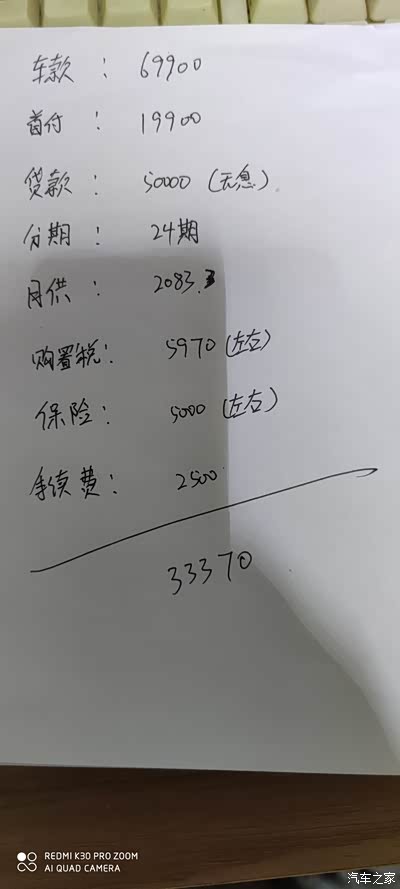 车款 : 69900
首付 : 19900
贷款 : 50000 (无息)
分期 : 24期
月供 : 2083.3
购置税: 5970 (左右)
保险: 5000 (左右)
手续费: 2500
33370
REDMI K30 PRO ZOOM
AI QUAD CAMERA
汽车之家